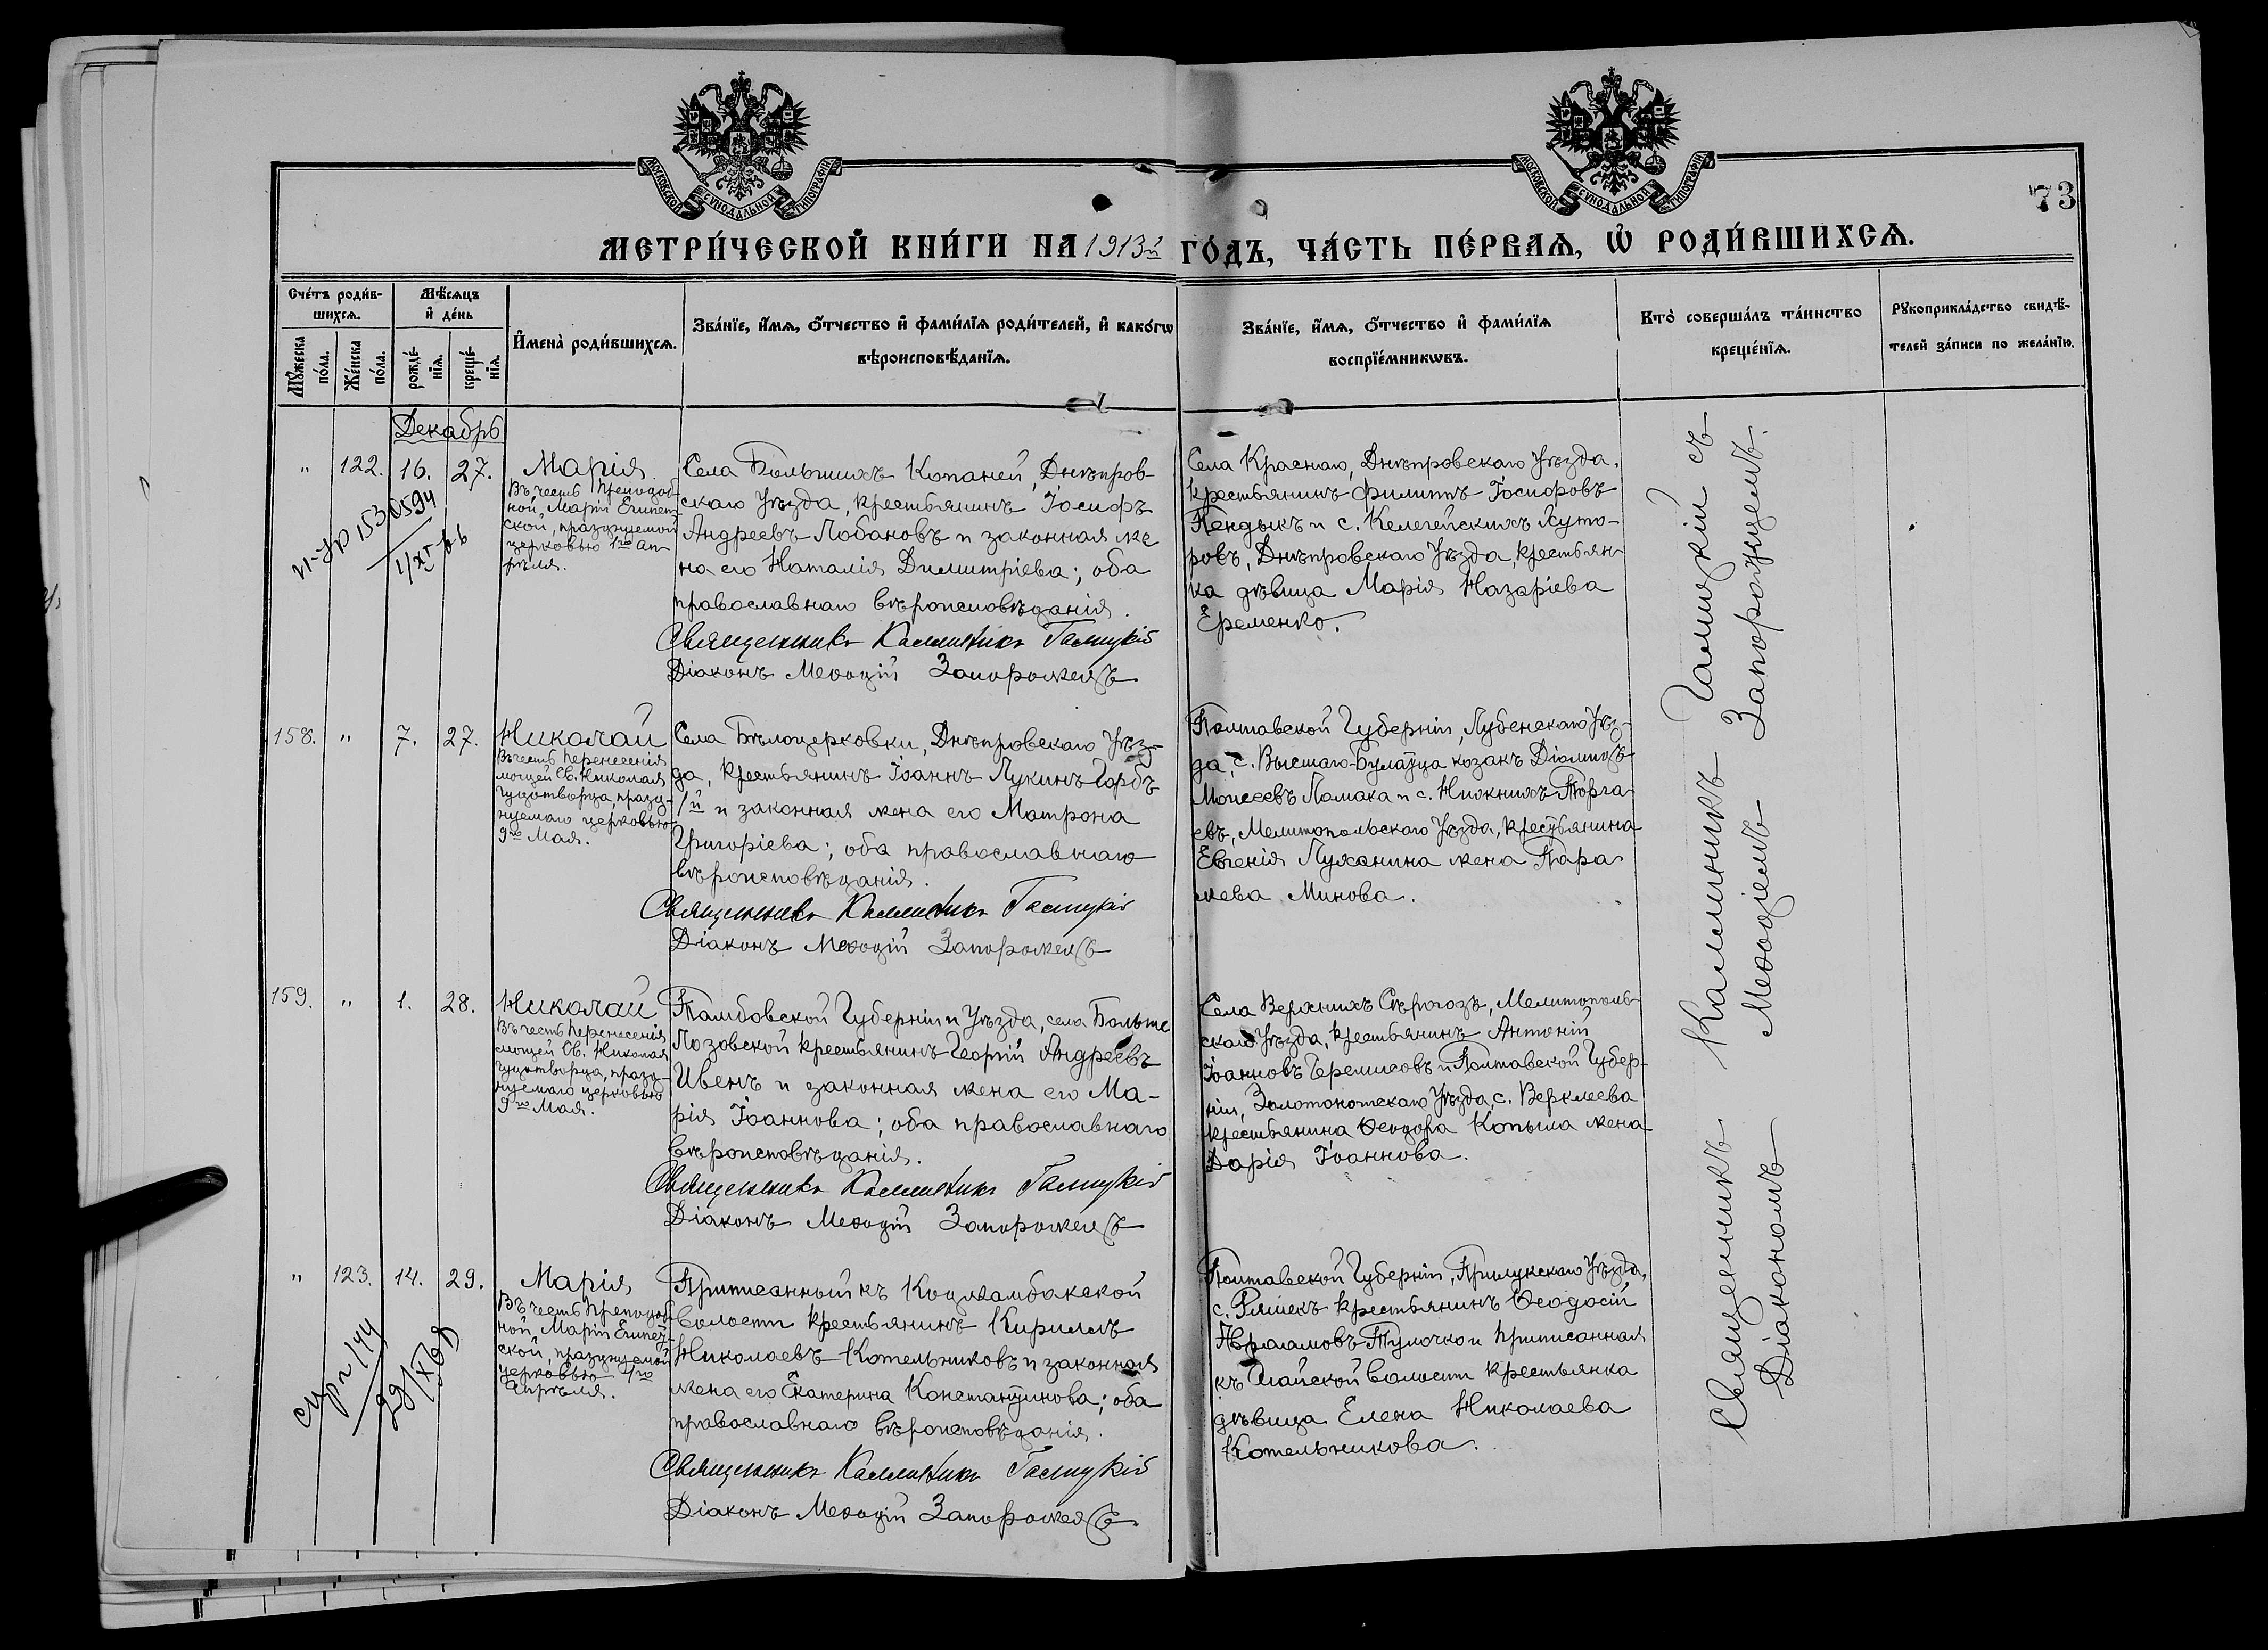 МОСКОВСКОЙ СУНОДАЛЬНОЙ ТИПОГРАФІИ
МОСКОВСКОЙ СУНОДАЛЬНОЙ ТИПОГРАФІИ
73
МЕТРИ́ЧЕСКОЙ КНИ́ГИ НА 1913й ГО́ДЪ, ЧА́СТЬ ПЕ́РВАѦ, Ѡ҆ РОДИ́ВШИХСѦ.
Сче́тъ роди́в-
шихсѧ.
Мꙋ́жеска по́ла.
Же́нска по́ла.
Мѣ́сѧцъ
и҆ де́нь
рожде́-
нїѧ.
креще́-
нїѧ.
И҆мена̀ роди́вшихсѧ.
Зва́нїе, и҆́мѧ, ѻ҆́тчество и҆ фами́лїѧ роди́телей, и҆ како́гѡ
вѣроисповѣ́данїѧ.
Зва́нїе, и҆́мѧ, ѻ҆́тчество и҆ фами́лїѧ
воспрїе́мникѡвъ.
Кто̀ соверша́лъ та́инство
креще́нїѧ.
Рꙋкоприкла́дство свидѣ́-
телей за́писи по жела́нїю.
Декабрь
" 122. 16. 27.
Марія
Въ честь Преподоб-
ной Маріи Египет-
ской, празднуемой
церковью 1го Ап-
рѣля.
Села Большихъ Копаней, Днѣпров-
скаго Уѣзда, крестьянинъ Іосифъ
Андреевъ Лобановъ и законная же
на его Наталія Димитріева; оба
православнаго вѣроисповѣданія.
Священникъ Каллиникъ Галицкій
Діаконъ Меѳодій Запорожецъ
Села Краснаго, Днѣпровскаго Уѣзда,
крестьянинъ Филиппъ Іосифовъ
Кендыкъ и с. Келегейскихъ Хуто-
ровъ, Днѣпровскаго Уѣзда, крестьян
ка дѣвица Марія Назаріева
Еременко.
158. " 7. 27.
Николай
Въ честь Перенесенія
мощей Св. Николая
Чудотворца, празд-
нуемаго церковью
9го Мая.
Села Бѣлоцерковки, Днѣпровскаго Уѣз-
да, крестьянинъ Іоаннъ Лукинъ Горбъ
1й и законная жена его Матрона
Григоріева; оба православнаго
вѣроисповѣданія.
Священникъ Каллиникъ Галицкій
Діаконъ Меѳодій Запорожецъ
Полтавской Губерніи, Лубенскаго Уѣз-
да, с. Высшаго-Булатца козакъ Діомидъ
Моисеевъ Ломака и с. Нижнихъ Торга
евъ, Мелитопольскаго Уѣзда, крестьянина
Евгенія Луханина жена Пара
скева Минова.
159. " 1. 28.
Николай
Въ честь Перенесенія
мощей Св. Николая
Чудотворца, празд-
нуемаго церковью
9го Мая.
Тамбовской Губерніи и Уѣзда, села Больше
Лозовской крестьянинъ Георгій Андреевъ
Ивенъ и законная жена его Ма-
рія Іоаннова; оба православнаго
вѣроисповѣданія.
Священникъ Каллиникъ Галицкій
Діаконъ Меѳодій Запорожецъ
Села Верхнихъ Сѣрогозъ, Мелитополь-
скаго Уѣзда, крестьянинъ Антоній
Іоанновъ Черемисовъ и Полтавской Губер-
ніи, Золотоношскаго Уѣзда, с. Веркеева
крестьянина Ѳеодора Копыла жена
Дарія Іоаннова.
" 123. 14. 29.
Марія
Въ честь Преподоб
ной Маріи Египет-
ской, празднуемой
церковью 1го
Апрѣля.
Приписанный къ Коджамбакской
волости крестьянинъ Кириллъ
Николаевъ Котельниковъ и законная
жена его Екатерина Константинова; оба
православнаго вѣроисповѣданія.
Священникъ Каллиникъ Галицкій
Діаконъ Меѳодій Запорожецъ
Полтавской Губерніи, Прилукскаго Уѣзда,
с. Ряшекъ крестьянинъ Ѳеодосій
Авраамовъ Тулочко и приписанная
къ волости крестьянка
дѣвица Елена Николаева
Котельникова.
Священникъ Каллиникъ Галицкій съ
Діакономъ Меѳодіемъ Запорожцемъ.